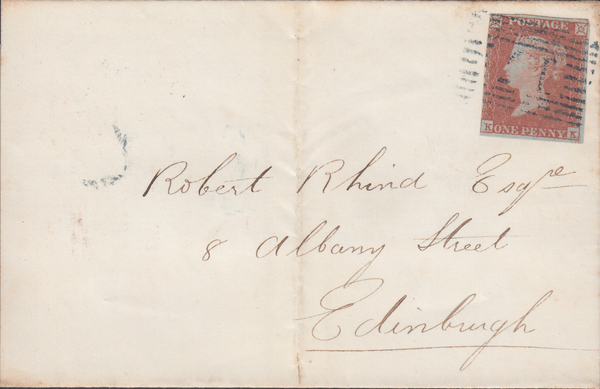 POSTAGE
K ONE PENNY K
Robert Rhind Esqre
8 Albany Street
Edinburgh